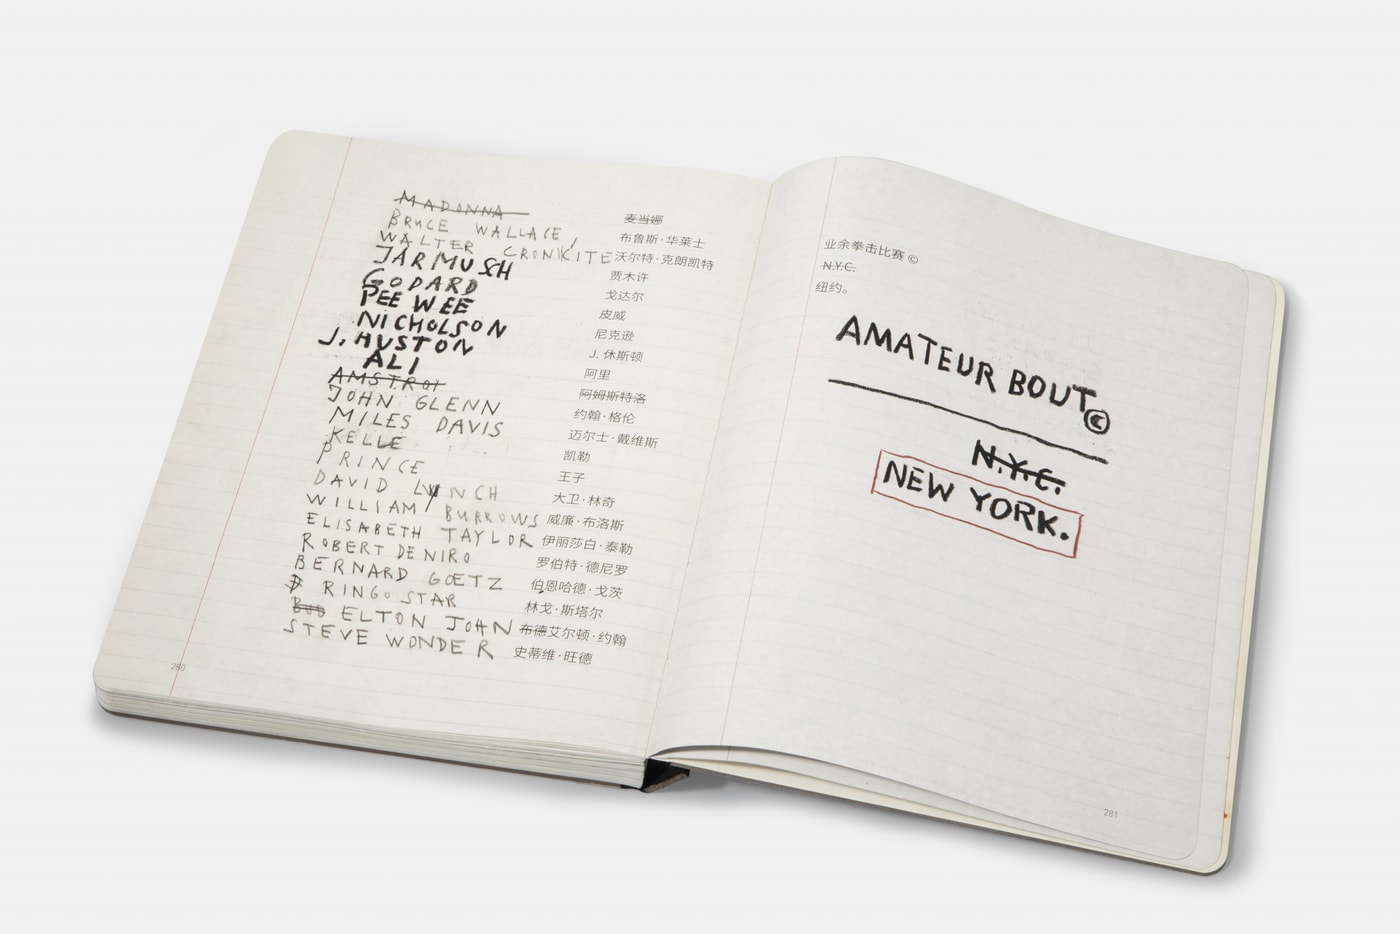 MADONNA 麦当娜
BRUCE WALLACE, 布鲁斯·华莱士
WALTER CRONKITE 沃尔特·克朗凯特
JARMUSH 贾木许
GODARD 戈达尔
PEE WEE 皮威
NICHOLSON 尼克逊
J. HUSTON J. 休斯顿
ALI 阿里
AMSTROI 阿姆斯特洛
JOHN GLENN 约翰·格伦
MILES DAVIS 迈尔士·戴维斯
KELLE 凯勒
PRINCE 王子
DAVID LYNCH 大卫·林奇
WILLIAM BURROWS 威廉·布洛斯
ELISABETH TAYLOR 伊丽莎白·泰勒
ROBERT DE NIRO 罗伯特·德尼罗
BERNARD GOETZ 伯恩哈德·戈茨
RINGO STAR 林戈·斯塔尔
BOB ELTON JOHN 布德艾尔顿·约翰
STEVE WONDER 史蒂维·旺德
280
业余拳击比赛 ©
N.Y.C.
纽约。
AMATEUR BOUT ©
N.Y.C.
NEW YORK.
281